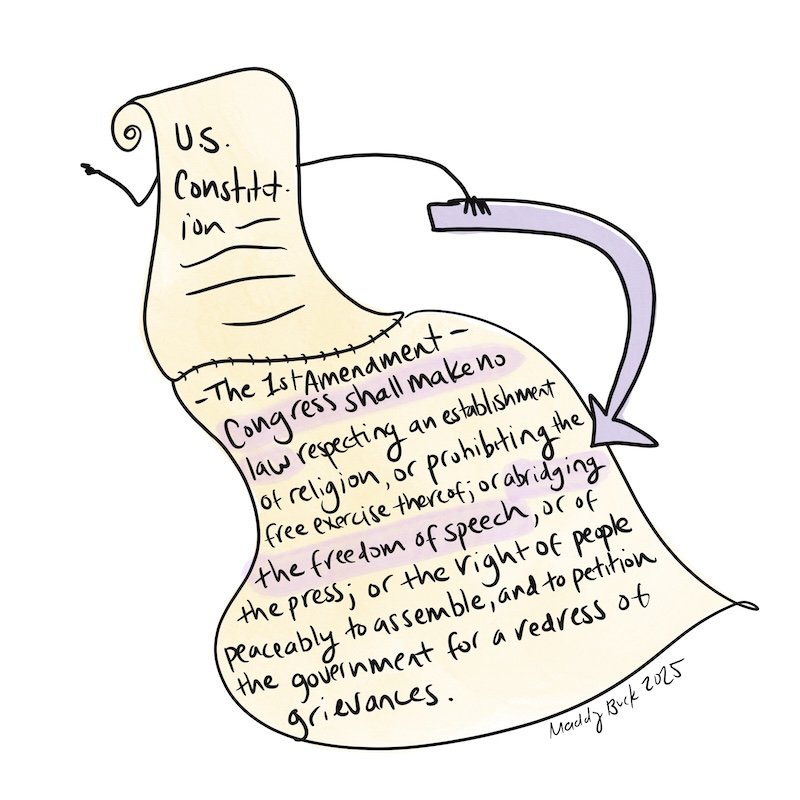 U.S.
Constitut-
ion
- The 1st Amendment -
Congress shall make no
law respecting an establishment
of religion, or prohibiting the
free exercise thereof; or abridging
the freedom of speech, or of
the press; or the right of people
peaceably to assemble, and to petition
the government for a redress of
grievances.
Maddy Buck 2025